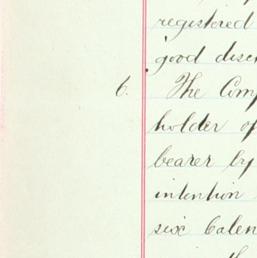 registered
good
6. The Com
holder of
bearer by
intention
six Calen